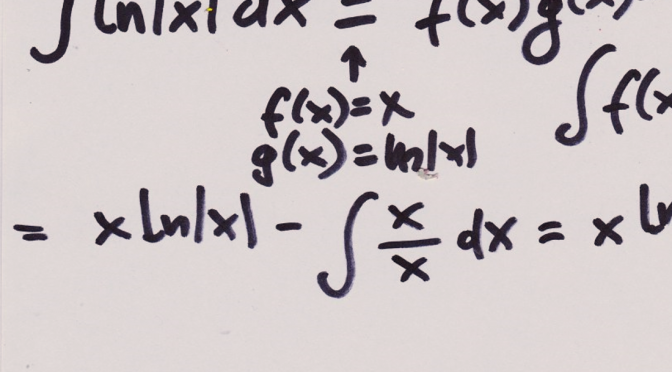 ∫ ln|x| dx = f(x)g(x)
↑
f(x)=x
∫ f(x
g(x)=ln|x|
= x ln|x| - ∫ x/x dx = x ln